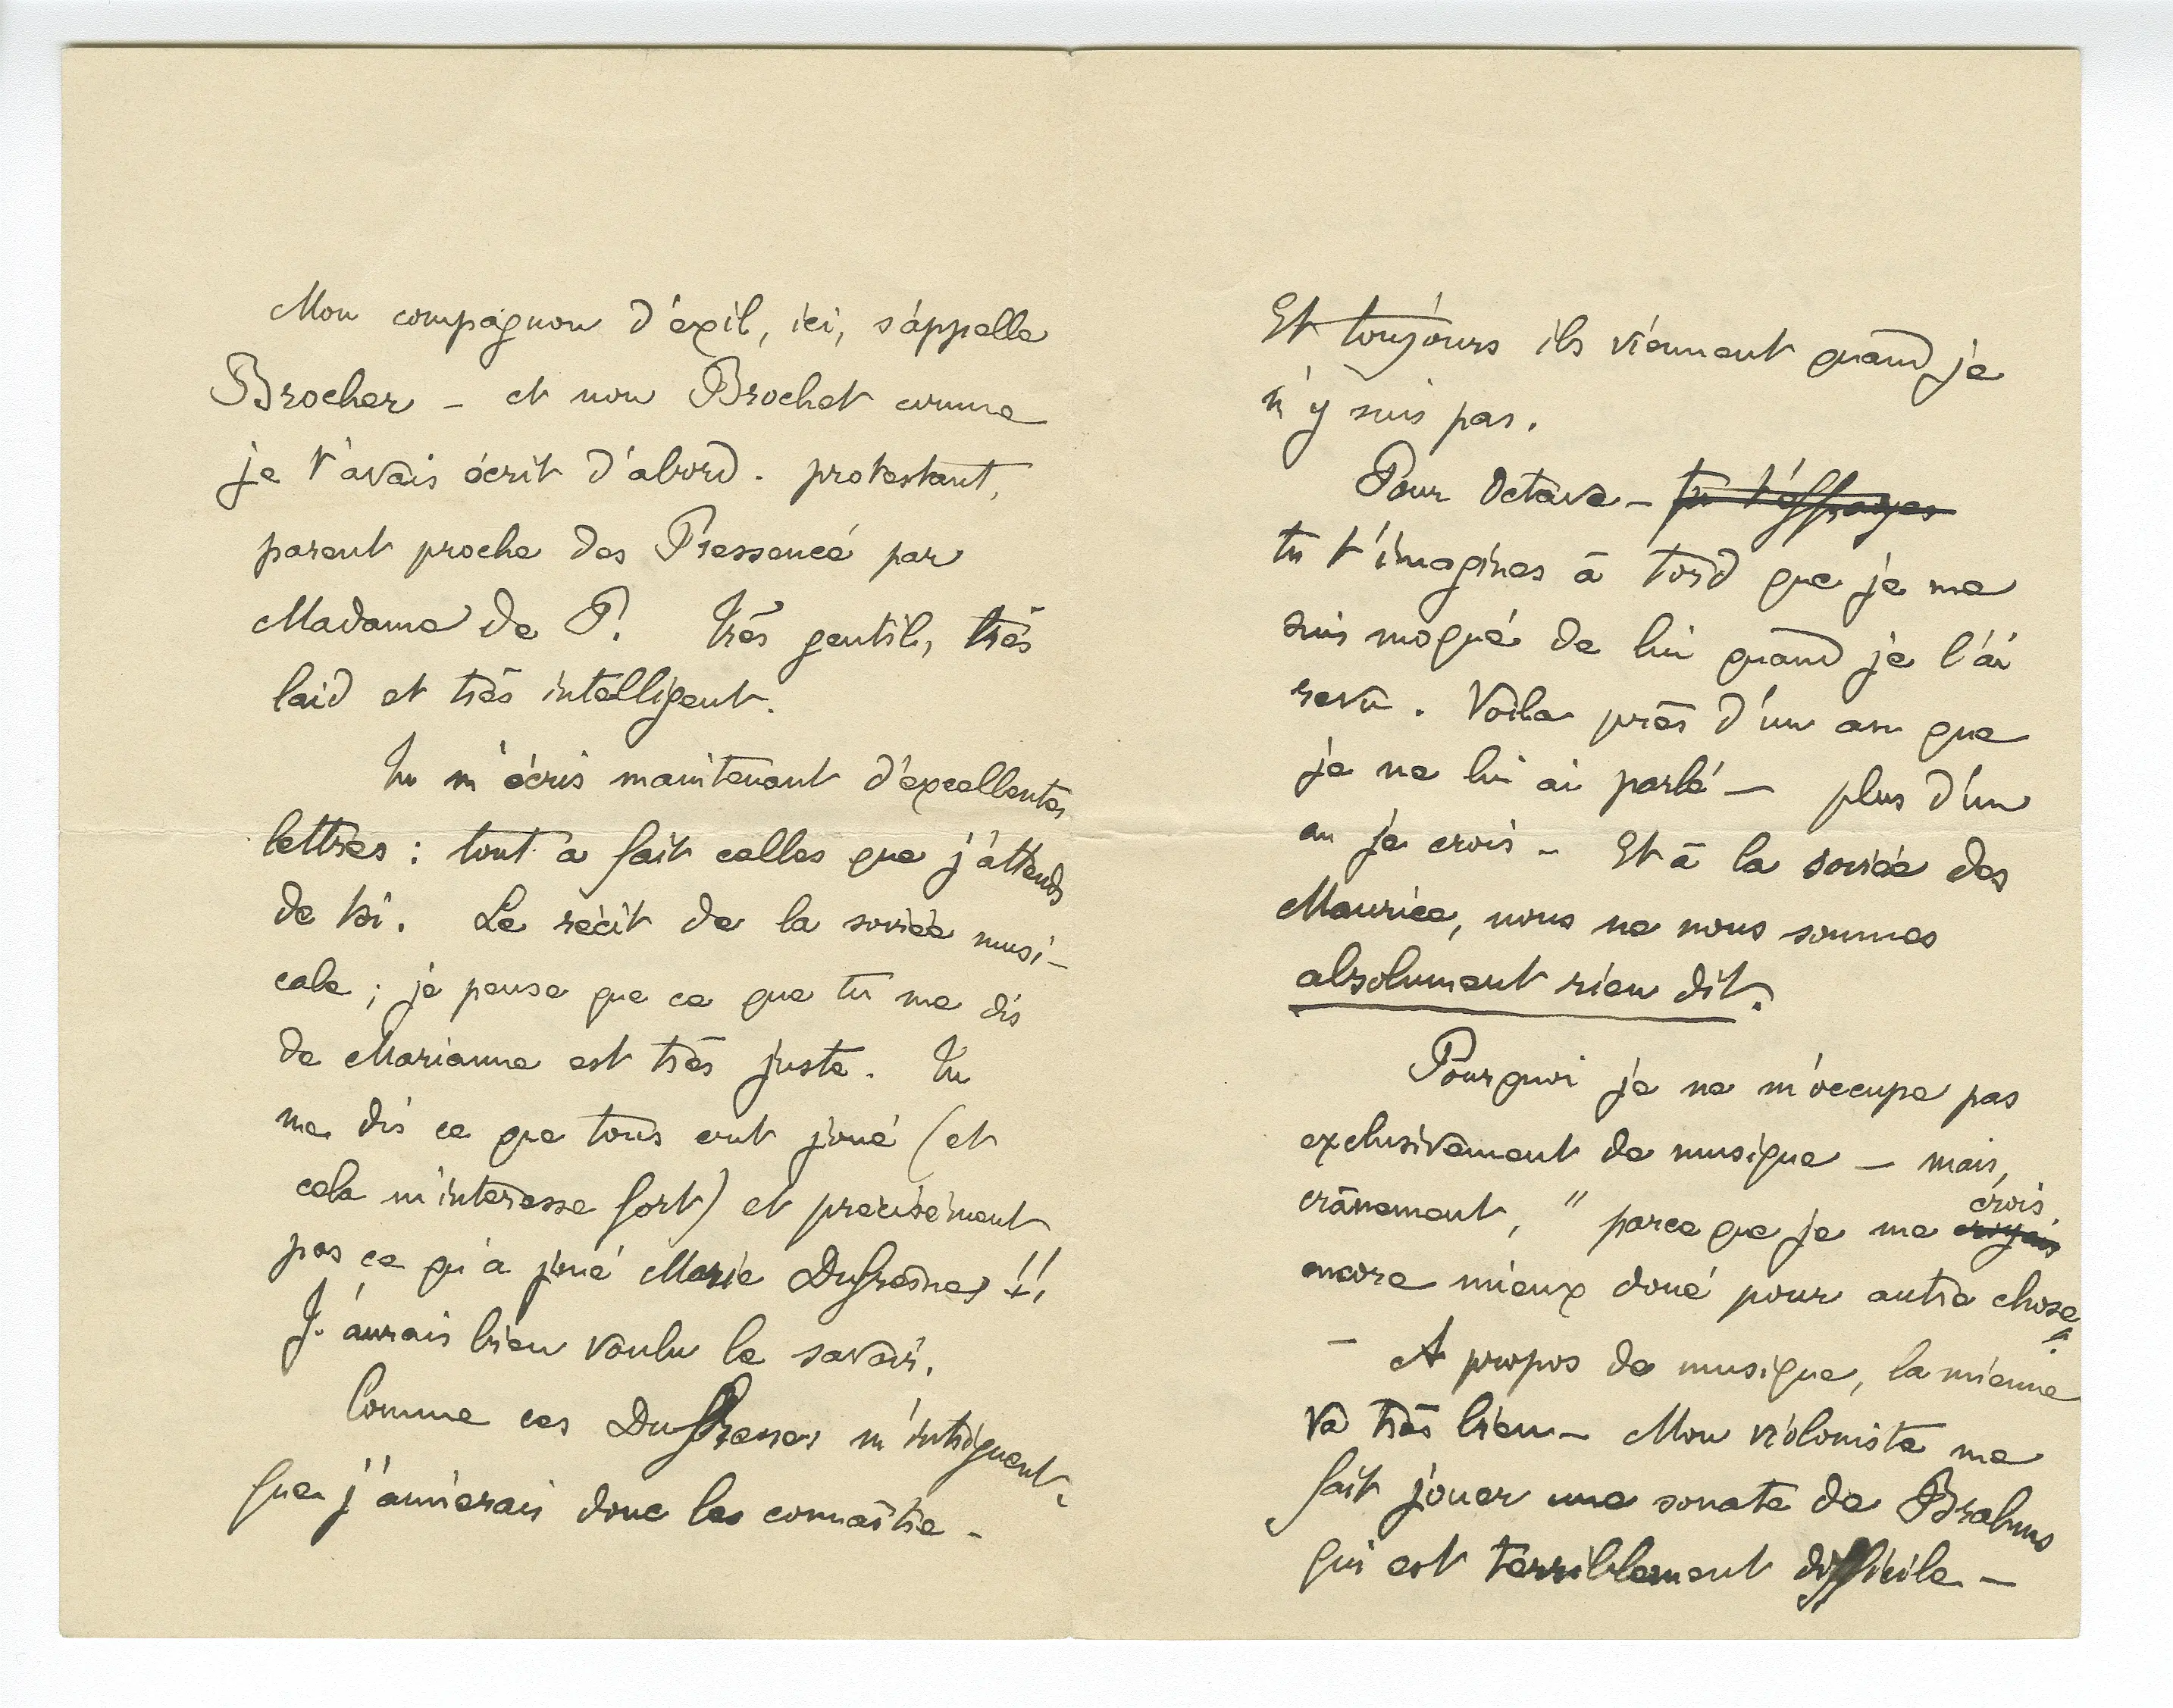 Mon compagnon d'exil, ici, s'appelle
Brocher – et non Brochet comme
je t'avais écrit d'abord. protestant,
parent proche des Pressencé par
Madame de P. Très gentil, très
laid et très intelligent.
Tu m'écris maintenant d'excellentes
lettres : tout a fait celles que j'attends
de toi. Le récit de la soirée musi-
cale ; je pense que ce que tu me dis
de Marianne est très juste. Tu
me dis ce que tous ont joué (et
cela m'interesse fort) et precisément
pas ce qu'a joué Marie Dufresnes !!
J'aurais bien voulu le savoir.
Comme ces Dufresnes m'intriguent.
Que j'aimerais donc les connaître –
Et toujours ils viennent quand je
n'y suis pas.
Pour Octave – tu t'effrayes
tu t'imagines à tord que je me
suis moqué de lui quand je l'ai
revu. Voila près d'un an que
je ne lui ai parlé – plus d'un
an je crois – Et à la soirée des
Maurice, nous ne nous sommes
absolument rien dit.
Pourquoi je ne m'occupe pas
exclusivement de musique – mais,
crânement, "parce que je me croyais crois
encore mieux doué pour autre chose".
– A propos de musique, la mienne
va très bien – Mon violoniste me
fait jouer une sonate de Brahms
qui est terriblement difficile –